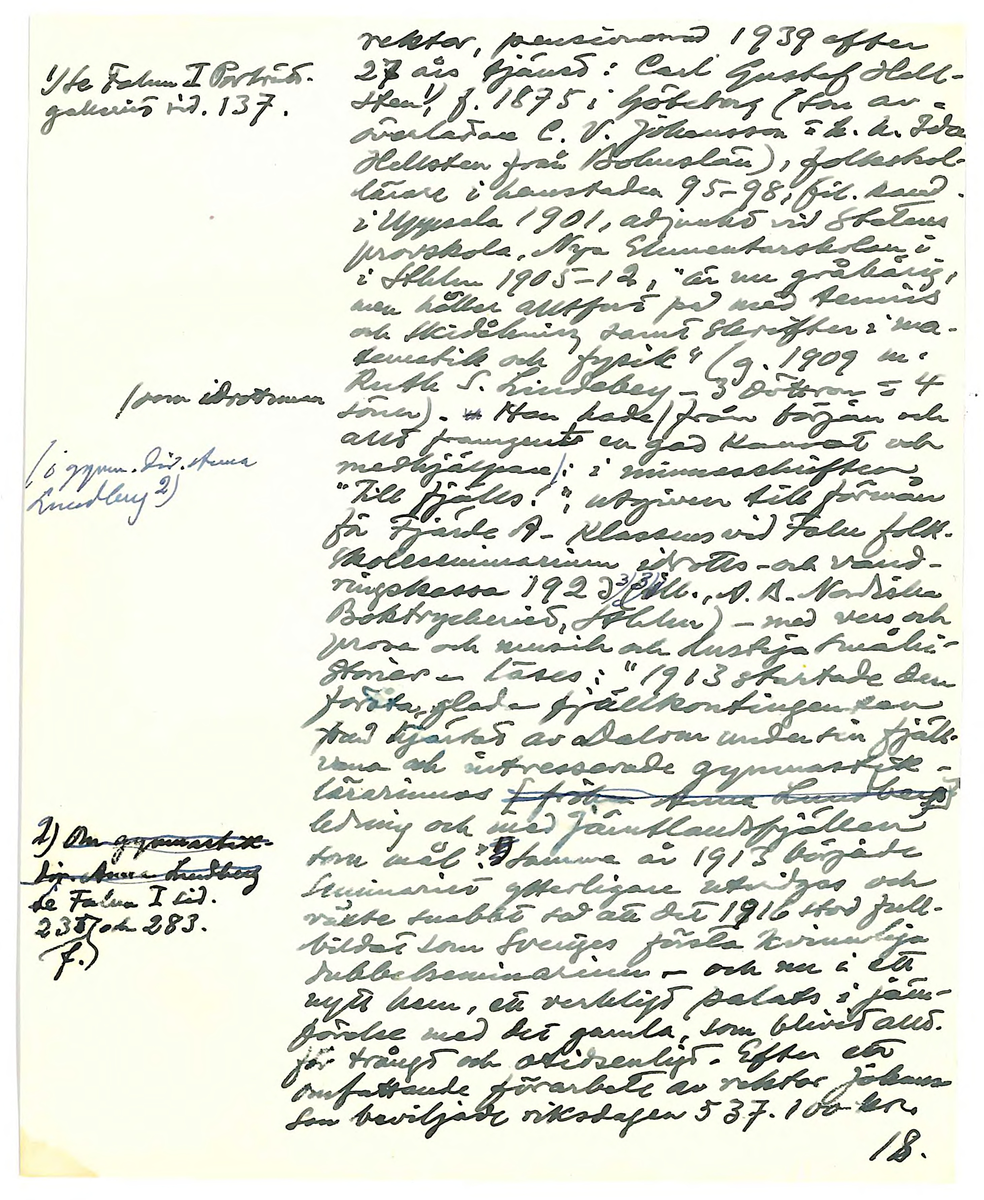 rektor, pensionerad 1939 efter
27 års tjänst: Carl Gustaf Hell-
sten¹), f. 1875 i Göteborg (son av
överläraren C. V. Johansson o. h. h. Ida
Hellsten från Bohuslän), folkskol-
lärare i hemstaden 95–98, fil. kand.
i Uppsala 1901, adjunkt vid Statens
provskola, Nya Elementarskolan i
i Sthlm 1905–12, "är nu gråhårig,
men håller alltfort på med tennis
och skidåkning samt skrifter i ma-
tematik och fysik" (g. 1909 m.
Ruth S. Lindeberg – 3 döttrar o 4
söner). Han hade / från början och
allt framgent en god kamrat och
medhjälpare /: i minnesskriften
"Till fjälls!", utgiven till förmån
för Fjärde A-klassens vid Falu folk-
skoleseminarium idrotts- och vand-
ringskassa 1923 (A. B. Nordiska
Boktryckeriet, Sthlm) – med vers och
prosa och musik och lustiga småhi-
storier – läses: "1913 startade den
första glada fjällkontingenten
från hjärtat av Dalom under sin fjäll-
vana och intresserade gymnastik-
lärarinnas (fröken Anna Lundberg)
ledning och med Jämtlandsfjällen
som mål". Samma år 1913 började
seminariet ytterligare utvidgas och
växte snabbt så att det 1916 stod full-
bildat som Sveriges första kvinnliga
dubbelseminarium – och nu i ett
nytt hem, ett verkligt palats i jäm-
förelse med det gamla, som blivit allt-
för trångt och otidsenligt. Efter ett
omfattande förarbete av rektor Johans-
son beviljade riksdagen 537.100 kr.
18.
1) Se Falun I Porträtt-
galleriet sid. 137.
/som idrottsman
/, i gymn. dir. Anna
Lundberg 2)
2) Om gymnastik-
dir. Anna Lundberg
se Falun I sid.
238 och 283.
f.)